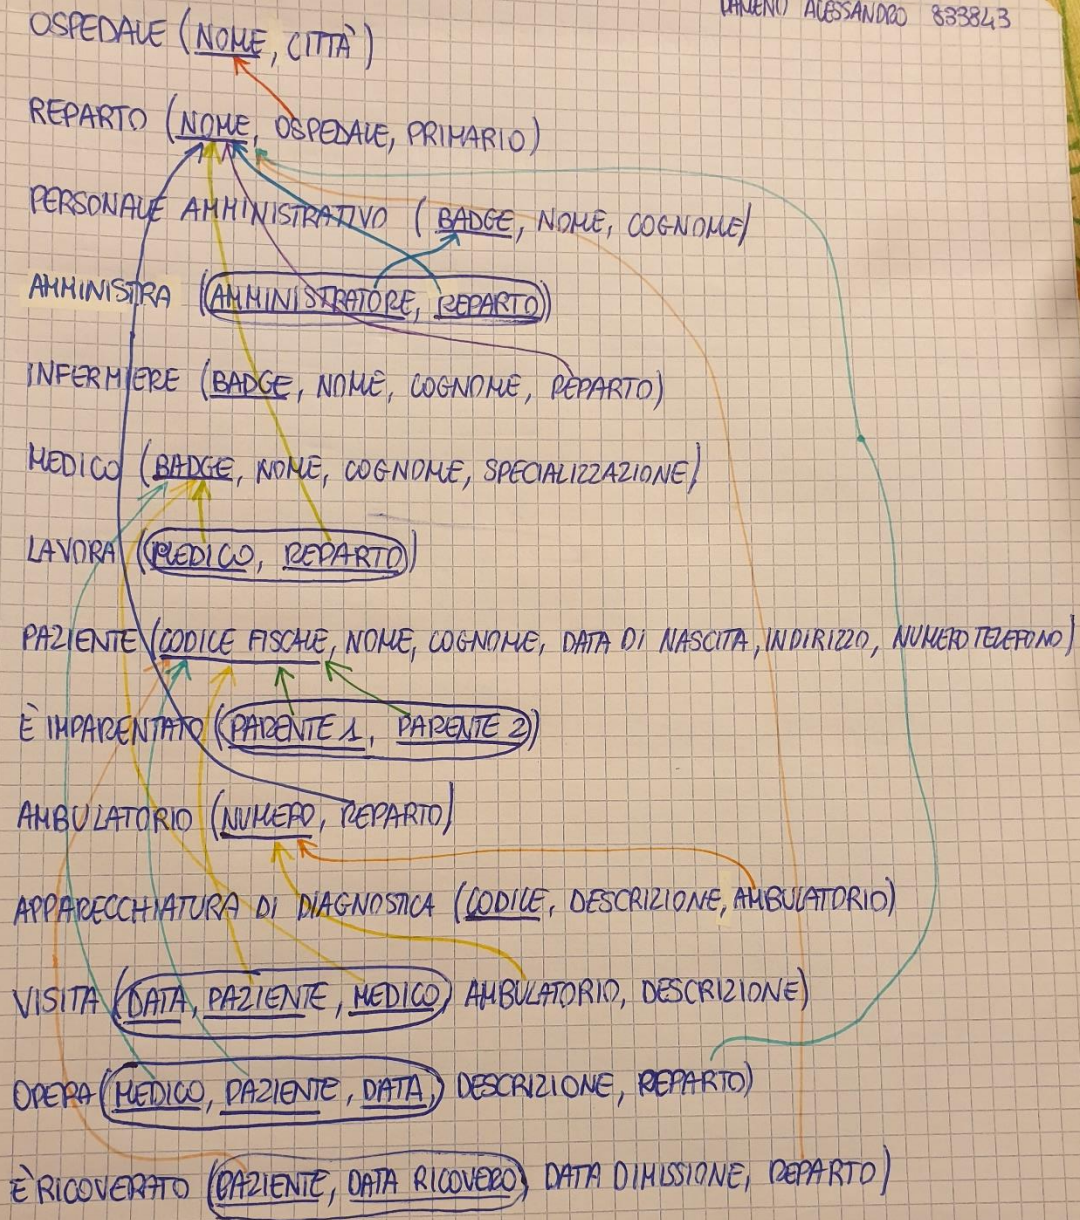 ALESSANDRO 833843
OSPEDALE (NOME, CITTÀ)
REPARTO (NOME, OSPEDALE, PRIMARIO)
PERSONALE AMMINISTRATIVO (BADGE, NOME, COGNOME)
AMMINISTRA (AMMINISTRATORE, REPARTO)
INFERMIERE (BADGE, NOME, COGNOME, REPARTO)
MEDICO (BADGE, NOME, COGNOME, SPECIALIZZAZIONE)
LAVORA (MEDICO, REPARTO)
PAZIENTE (CODICE FISCALE, NOME, COGNOME, DATA DI NASCITA, INDIRIZZO, NUMERO TELEFONO)
È IMPARENTATO (PARENTE 1, PARENTE 2)
AMBULATORIO (NUMERO, REPARTO)
APPARECCHIATURA DI DIAGNOSTICA (CODICE, DESCRIZIONE, AMBULATORIO)
VISITA (DATA, PAZIENTE, MEDICO, AMBULATORIO, DESCRIZIONE)
OPERA (MEDICO, PAZIENTE, DATA, DESCRIZIONE, REPARTO)
È RICOVERATO (PAZIENTE, DATA RICOVERO, DATA DIMISSIONE, REPARTO)